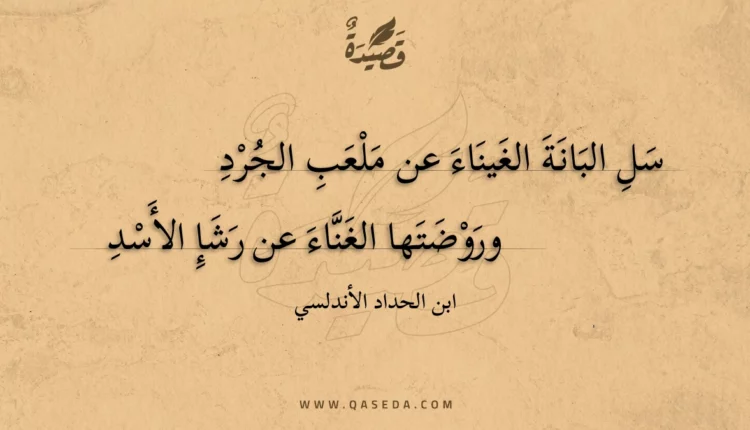 قَصِيْدَةٌ
سَلِ البَانَةَ الغَينَاءَ عن مَلْعَبِ الجُرْدِ
ورَوْضَتَها الغَنَّاءَ عن رَشَإِ الأَسْدِ
ابن الحداد الأندلسي
WWW.QASEDA.COM